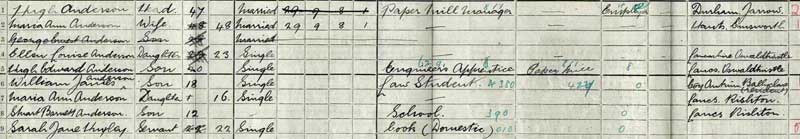 1 Hugh Anderson Head 47 Married 29 9 8 1 Paper Mill Manager Durham Jarrow
2 Maria Ann Anderson Wife 48 Married 29 9 8 1 Hants
3 George Anderson Son Married
4 Ellen Louise Anderson Daughter 23 Single Lancashire Oswaldtwistle
5 Hugh Edward Anderson Son 20 Single Engineer's Apprentice Paper Mill 8 Lancs Oswaldtwistle
6 William James Anderson Son 18 Single Law Student 380 0 Coy Antrim Ballyclare (resident)
Maria Ann Anderson Daughter 16 Single Lancs Rishton
8 Stuart Barnett Anderson Son 12 School 390 0 Lancs Rishton
9 Sarah Jane Servant 22 Single Cook (Domestic) 010 0